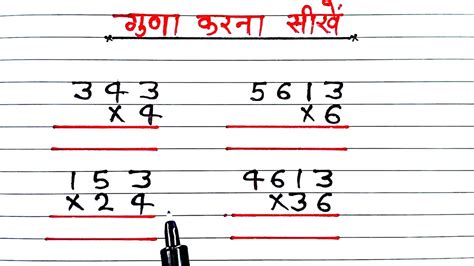 गुणा करना सीखें
343
×4
5613
×6
153
×24
4613
×36